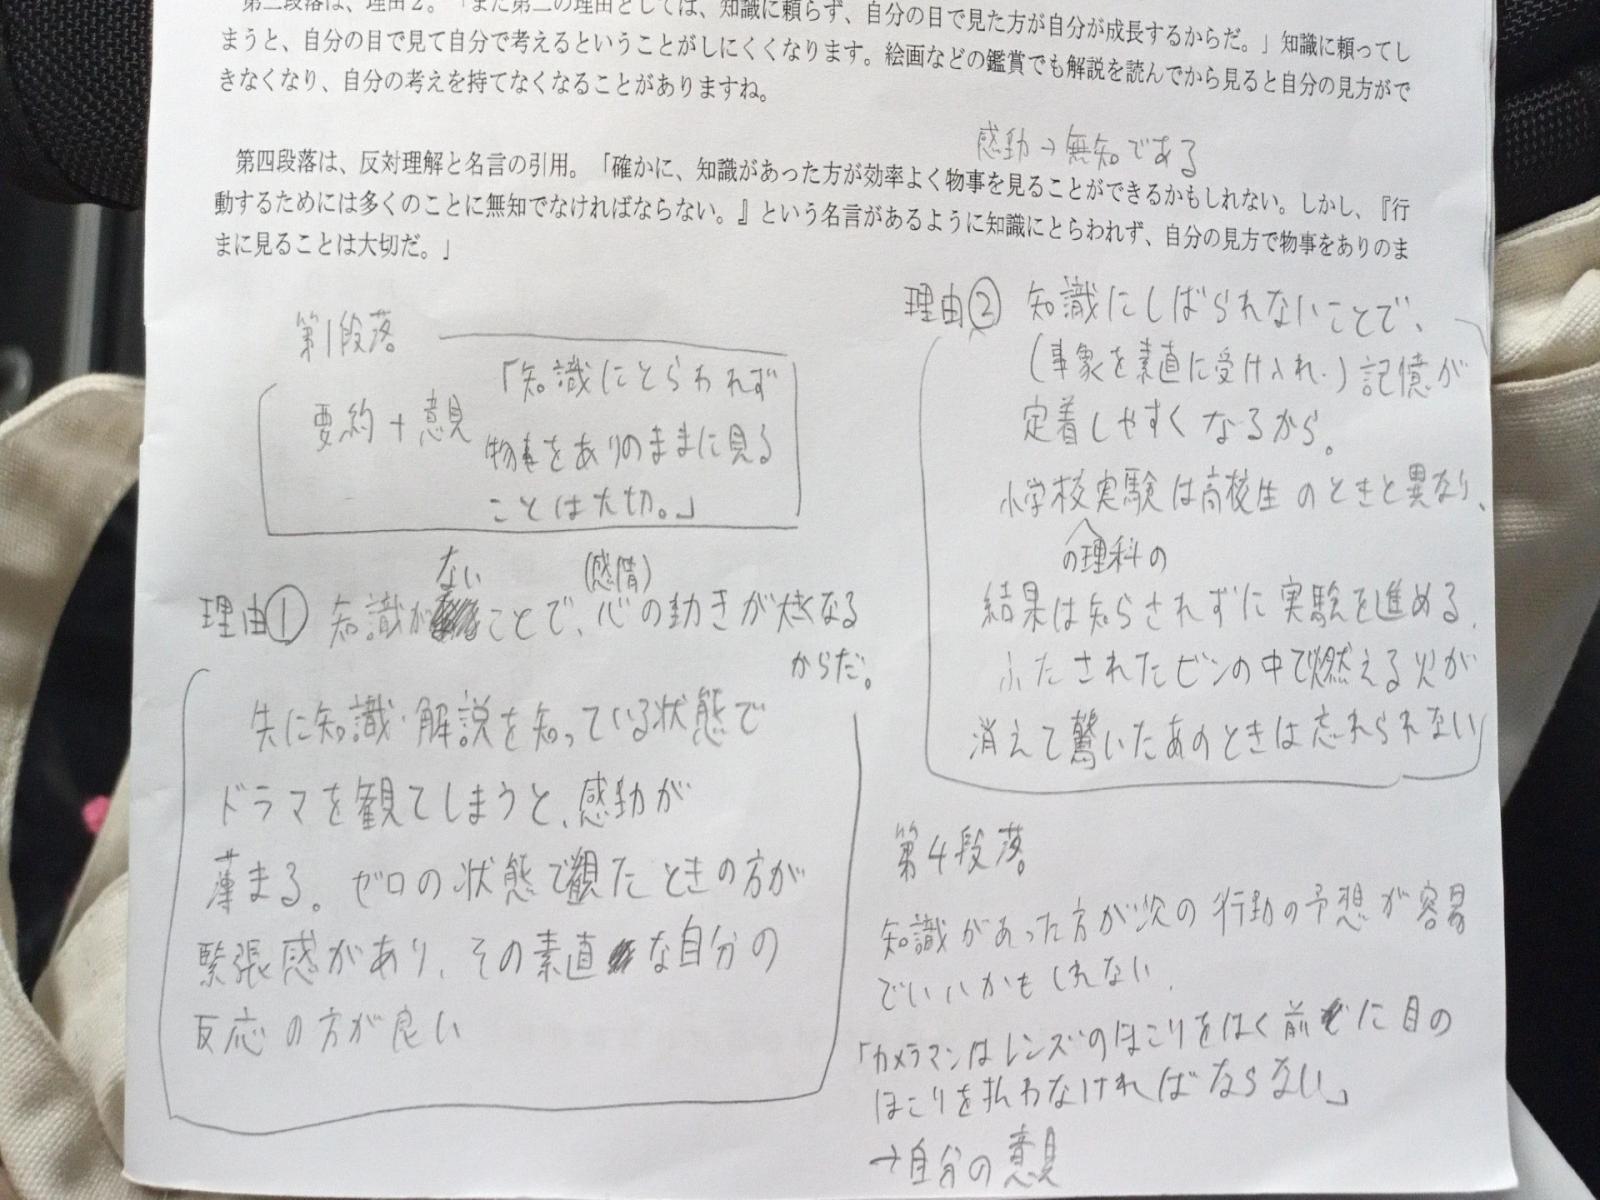 第三段落は、理由2。「また第二の理由としては、知識に頼らず、自分の目で見た方が自分が成長するからだ。」知識に頼ってし
まうと、自分の目で見て自分で考えるということがしにくくなります。絵画などの鑑賞でも解説を読んでから見ると自分の見方がで
きなくなり、自分の考えを持てなくなることがありますね。
感動→無知である
第四段落は、反対理解と名言の引用。「確かに、知識があった方が効率よく物事を見ることができるかもしれない。しかし、『行
動するためには多くのことに無知でなければならない。』という名言があるように知識にとらわれず、自分の見方で物事をありのま
まに見ることは大切だ。」
第1段落
要約+意見
「知識にとらわれず
物事をありのままに見る
ことは大切。」
理由① 知識がないことで、心の動きが大きくなる
(感情)
からだ。
先に知識・解説を知っている状態で
ドラマを観てしまうと、感動が
薄まる。ゼロの状態で観たときの方が
緊張感があり、その素直な自分の
反応の方が良い
理由② 知識にしばられないことで、
(事象を素直に受け入れ、)記憶が
定着しやすくなるから。
小学校実験は高校生のときと異なり、
の理科の
結果は知らされずに実験を進める。
ふたされたビンの中で燃える火が
消えて驚いたあのときは忘れられない
第4段落
知識があった方が次の行動の予想が容易
でいいかもしれない。
「カメラマンはレンズのほこりをはく前に目の
ほこりを払わなければならない」
→自分の意見